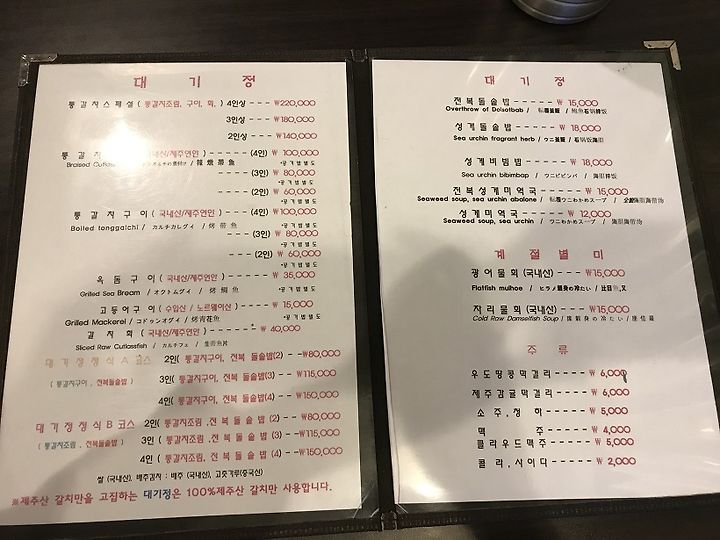 대 기 정
통갈치스페셜( 통갈치조림, 구이, 회, ) 4인상 --- ₩220,000
3인상 ---- ₩180,000
2인상 ---- ₩140,000
통 갈 치 국내산/제주연안) ------- (4인) ₩ 100,000
Braised Cutlass 辣 燉 帶 魚 *공기밥별도
--- (3인) ₩ 80,000
*공기밥별도
--- (2인) ₩ 60,000
*공기밥별도
통갈치구이 ( 국내산/제주연안) ----- (4인) ₩100,000
Boiled tonggalchi / カルチカレグイ / 烤 帶 魚 *공기밥별도
--- (3인) ₩ 80,000
*공기밥별도
--- (2인) ₩ 60,000
*공기밥별도
옥 돔 구 이 ( 국내산/제주연안) ----- ₩ 35,000
Grilled Sea Bream / オクトムグイ / 烤 鯛 魚 *공기밥별도
고등어구이 ( 수입산 / 노르웨이산) --- ₩ 15,000
Grilled Mackerel / コドゥンオグイ / 烤青花魚 *공기밥별도
갈 치 회 ( 국내산/제주연안) ----- ₩ 40,000
Sliced Raw Cutlassfish / カルチフェ / 生
대기정정식 A 코스 2인( 통갈치구이, 전복 돌솥밥(2) --₩80,000
( 통갈치구이 , 전복돌솥밥) 3인( 통갈치구이, 전복 돌솥밥(3) --₩115,000
4인( 통갈치구이, 전복 돌솥밥(4) --₩150,000
대 기 정 정 식 B 코스 2인( 통갈치조림 ,전 복 돌솥밥 (2) --₩80,000
( 통갈치조림 , 전복돌솥밥) 3인 ( 통갈치조림 ,전 복 돌솥밥 (3) --₩115,000
4인 ( 통갈치조림 ,전 복 돌솥밥 (4) --₩150,000
쌀 (국내산), 배추김치 : 배추 (국내산), 고춧가루(중국산)
※제주산 갈치만을 고집하는 대기정은 100%제주산 갈치만 사용합니다.
대 기 정
전복돌솥밥 --- ₩ 15,000
Overthrow of Dolsotbab / 転覆釜飯 / 鲍鱼石锅拌饭
성게돌솥밥 ---- ₩ 18,000
Sea urchin fragrant herb / ウニ釜飯 / 石锅饭海胆
성게비빔밥 --- ₩ 18,000
Sea urchin bibimbap / ウニビビンバ / 海胆拌饭
전복성게미역국 ---- ₩ 15,000
Seaweed soup, sea urchin abalone / 転覆ウニわかめスープ /
성게미역국 ---- ₩ 12,000
Seaweed soup, sea urchin / ウニわかめスープ /
계 절 별 미
광어물회 (국내산) ----₩15,000
Flatfish mulhoe / ヒラメ
자리물회 (국내산)-----₩15,000
Cold Raw Damselfish Soup /
주 류
우도땅콩막걸리 ----₩ 6,000
제주감귤막걸리 ----₩ 6,000
소 주 , 청 하 -----₩ 5,000
맥 주 -----₩ 4,000
클라우드맥주 -----₩ 5,000
콜 라 , 사 이 다 ------₩ 2,000